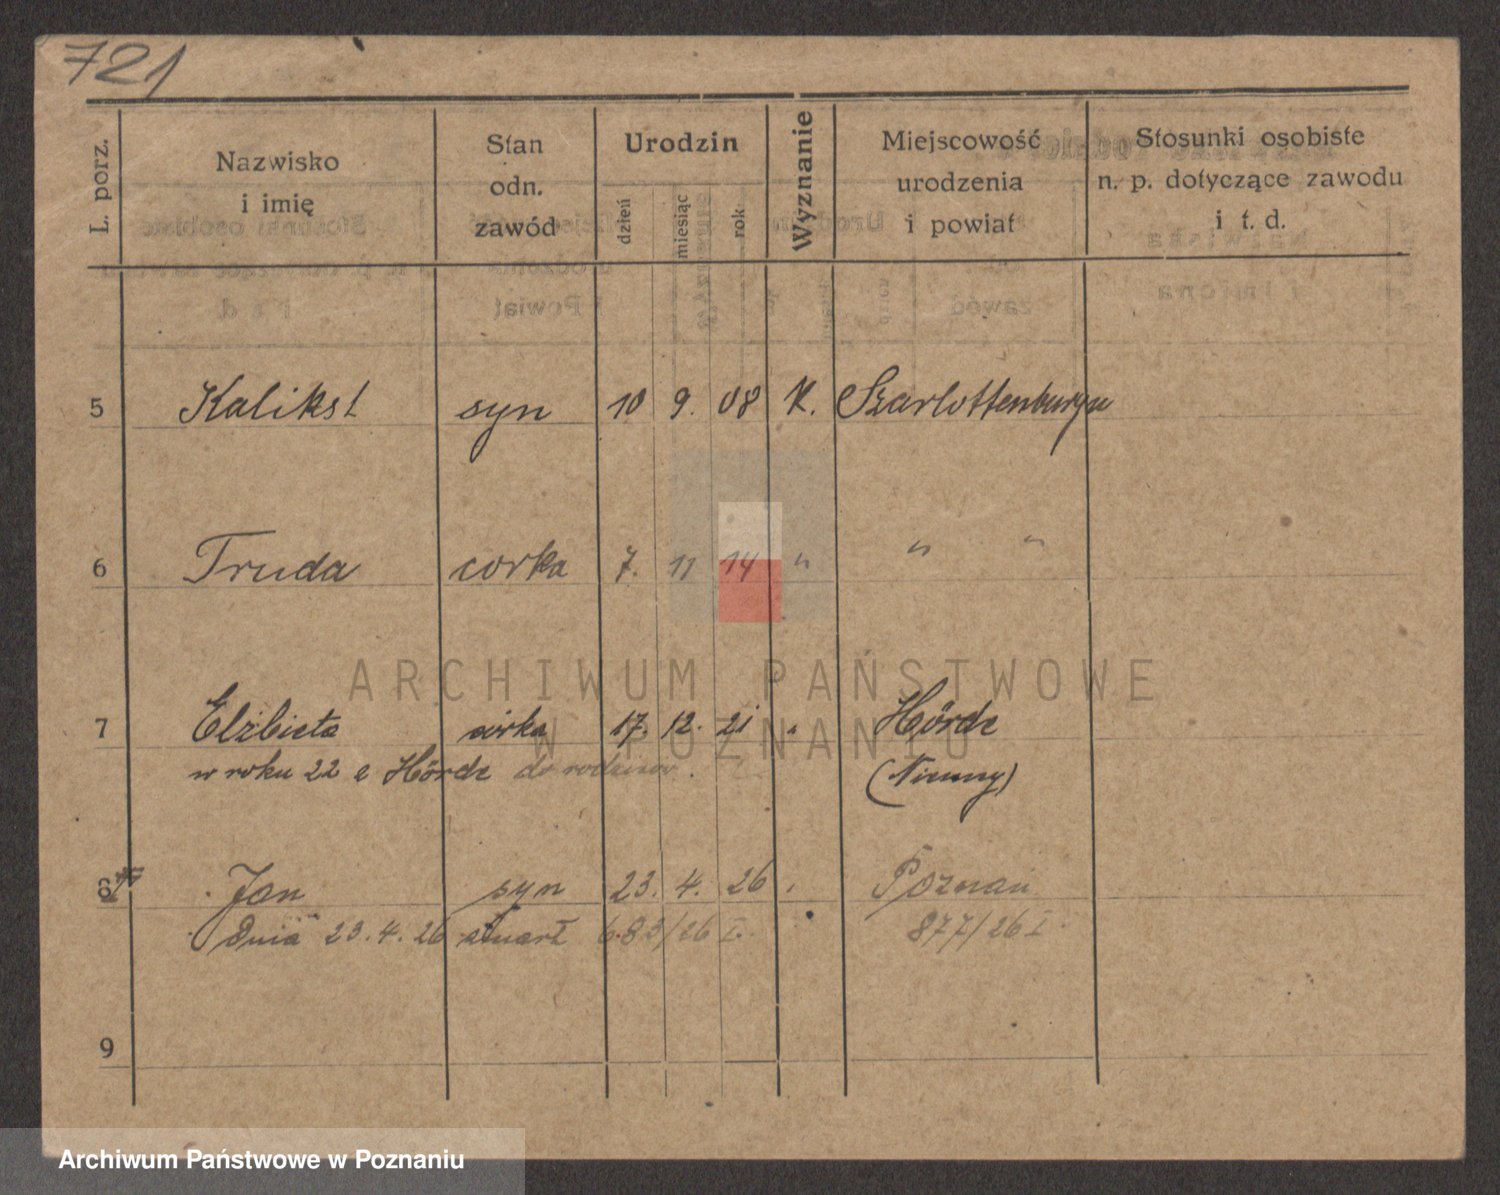 721
L. porz.
Nazwisko
i imię
Stan
odn.
zawód
Urodzin
dzień
miesiąc
rok
Wyznanie
Miejscowość
urodzenia
i powiat
Stosunki osobiste
n. p. dotyczące zawodu
i t. d.
5 Kalikst syn 10 9. 08 K. Szarlottenburgu
6 Truda corka 7. 11 14 " " "
7 Elżbieta córka 17. 12. 21 " Hörde
w roku 22 z Hörde do rodziców.
(Niemcy)
8 Jan syn 23. 4. 26 Poznań
Dnia 23.4.26 zmarł 683/26 I. 877/26 I
9
ARCHIWUM PAŃSTWOWE
W POZNANIU
Archiwum Państwowe w Poznaniu